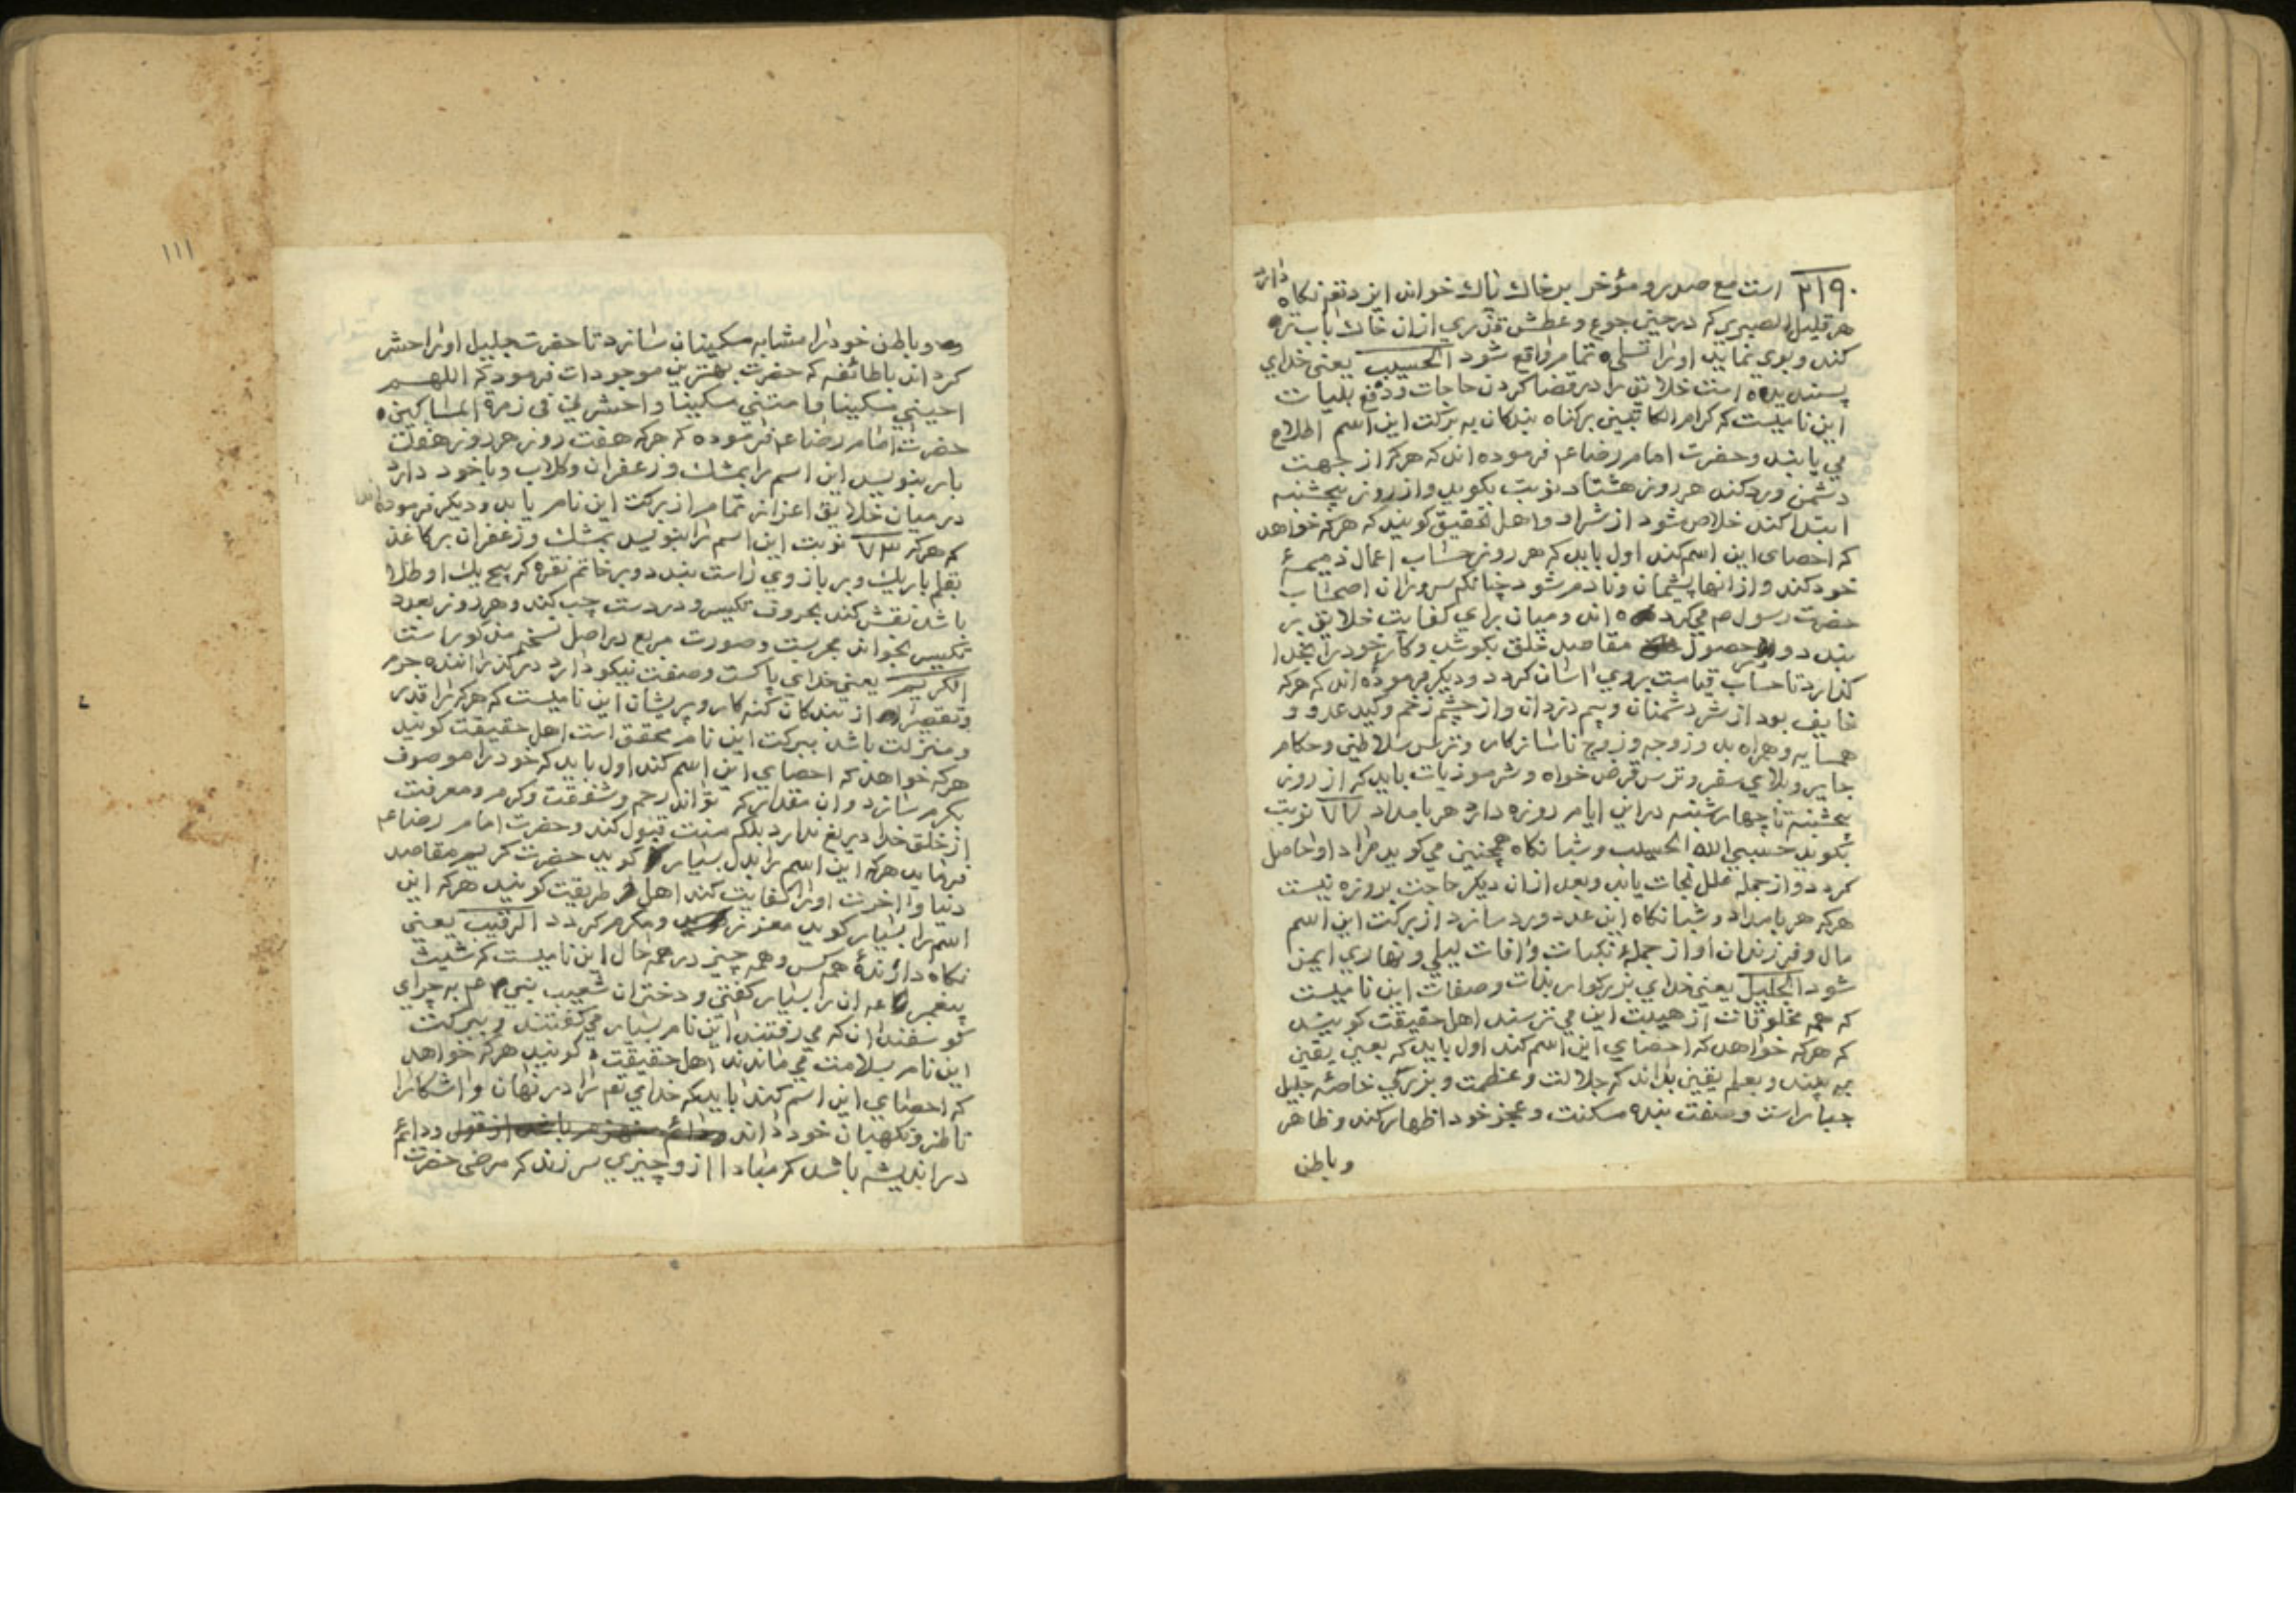 ۳۱۹۰ است مع صدر و مؤخر بر خاك پاك خواند ایزد تعم نکاه دارد
هر قلیل الصبری که در حین جوع و عطش قدری ازان خاك باب تره
کند و بوی نماید او را تسلی تمام واقع شود الحسیب یعنی خدای
پسندیده است خلایق را در قضا کردن حاجات و دفع بلیات
این نامیست که کرام الکاتبین بر کناه بندکان به برکت این اسم اطلاع
می یابند و حضرت امام رضا عم فرموده اند که هرکه از جهت
دشمن ورد کند هر روز هشتاد نوبت بکوید و از روز پنجشنبه
ابتدا کند خلاص شود از شر او و اهل تحقیق کویند که هرکه خواهد
که احصای این اسم کند اول باید که هر روز حساب اعمال ذمیمهٔ
خود کند و از انها پشیمان و نادم شود چنانکه سروران اصحاب
حضرت رسول صم می کرده اند و میان برای کفایت خلایق بر
بندد و حصول مقاصد خلق بکوشد و کار خود را بخدا
کذارد تا حساب قیامت بروی اسان کردد و دیکر فرموده اند که هرکه
خایف بود از شر دشمنان و بیم دزدان و از چشم زخم و کید عدو و
همسایه و همراه بد و زوجه و زوج ناسازکار و ترس سلاطین و حکام
جایر و بلای سفر و ترس قرض خواه و شر موذیات باید که از روز
پنجشنبه تا چهارشنبه در این ایام روزه دارد هر بامداد ۷۷ نوبت
بکوید حسبی الله الحسیب و شبانکاه همچنین می کوید مراد او حاصل
کردد و از جمله علل نجات یابد و بعد ازان دیکر حاجت بروزه نیست
هرکه هر بامداد و شبانکاه این عدد ورد سازد از برکت این اسم
مال و فرزندان او از جملهٔ نکبات و افات لیلی و نهاری ایمن
شود الجلیل یعنی خدای بزرکوار بذات و صفات این نامیست
که همه مخلوقات از هیبت این می ترسند اهل حقیقت کویند
که هرکه خواهد که احصای این اسم کند اول باید که بعین یقین
به بیند و بعلم یقین بداند که جلالت و عظمت و بزرکی خاصهٔ جلیل
جبار است و صفت بنده مسکنت و عجز خود اظهار کند و ظاهر
و باطن
۱۱۱
و باطن خود را مشابه مسکینان سازد تا حضرت جلیل او را حشر
کرداند با طائفه که حضرت بهترین موجودات فرمود که اللهم
احینی مسکینا و امتنی مسکینا و احشرنی فی زمرة المساکین
حضرت امام رضا عم فرموده که هرکه هفت روز هر روز هفت
بار بنویسد این اسم را بمشك و زعفران و کلاب و با خود دارد
در میان خلایق اعزاز تمام از برکت این نام یابد و دیکر فرموده اند
که هرکه ۷۳ نوبت این اسم را بنویسد بمشك و زعفران بر کاغذ
بقلم باریك و بر بازوی راست بندد و بر خاتم نقره که پنج یك او طلا
باشد نقش کند بحروف تکسیر و در دست چپ کند و هر روز بعدد
تکسیر بخواند مجربست و صورت مربع در اصل نسخه مذکور است
الکریم یعنی خدای پاکست و صفت نیکو دارد در کذرانیده جرم
و تقصیر از بندکان کنه کار و پریشان این نامیست که هرکه را قدر
و منزلت باشد ببرکت این نام محقق است اهل حقیقت کویند
هرکه خواهد که احصای این اسم کند اول باید که خود را موصوف
بکرم سازد و ان مقدار که تواند رحم و شفقت و کرم و معرفت
از خلق خدا دریغ ندارد بلکه منت قبول کند و حضرت امام رضا عم
فرماید هرکه این اسم را بدل بسیار کوید حضرت کریم مقاصد
دنیا و اخرت او را کفایت کند اهل طریقت کویند هرکه این
اسم را بسیار کوید معزز و مکرم کردد الرقیب یعنی
نکاه دارندهٔ همه کس و همه چیز در همه حال این نامیست که شیث
پیغمبر عم ان را بسیار کفتی و دختران شعیب نبی عم به چرای
کوسفندان که می رفتند این نام بسیار می کفتند و ببرکت
این نام بسلامت می ماندند اهل حقیقت کویند هرکه خواهد
که احصای این اسم کند باید که خدای تعم را در نهان و اشکارا
ناظر و نکهبان خود داند و دائم
در اندیشه باشد که مبادا از و چیزی سر زند که مرضی حضرت